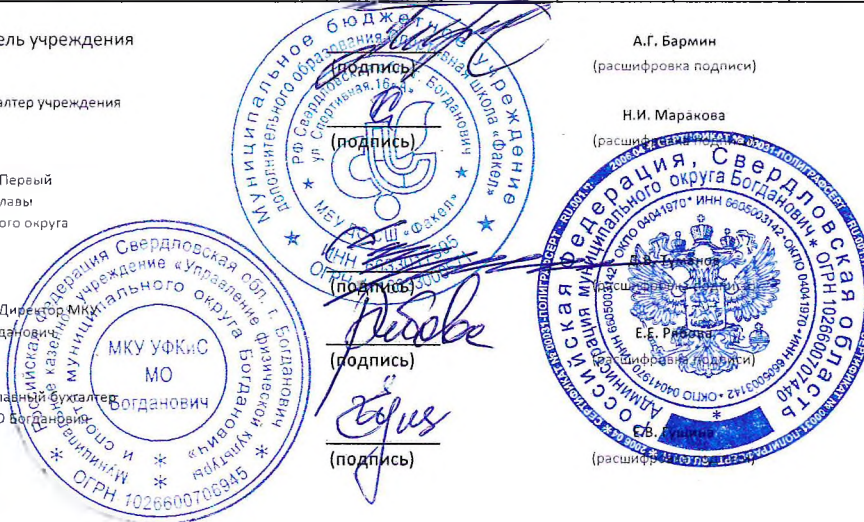 ель учреждения
А.Г. Бармин
(подпись)
(расшифровка подписи)
алтер учреждения
Н.И. Маракова
(подпись)
Первый
лавы
ого округа
Д.В. Туманов
(подпись)
Директор МКУ
данович
Е.Е. Рябова
(подпись)
(расшифровка подписи)
лавный бухгалтер
О Богданович
(подпись)
Муниципальное бюджетное учреждение
дополнительного образования спортивная школа «Факел»
РФ Свердловская г. Богданович
ул Спортивная, 16
МБУ ДО СШ «Факел»
ИНН
ОГРН
Российская Федерация Свердловская обл. г. Богданович
Муниципальное казенное учреждение «Управление физической культуры
и спорта муниципального округа Богданович»
МКУ УФКиС
МО
Богданович
ОГРН 1026600706945
Российская Федерация, Свердловская область
Администрация муниципального округа Богданович * ОГРН 1026600707440
ОКПО 04041970 * ИНН 6605003142